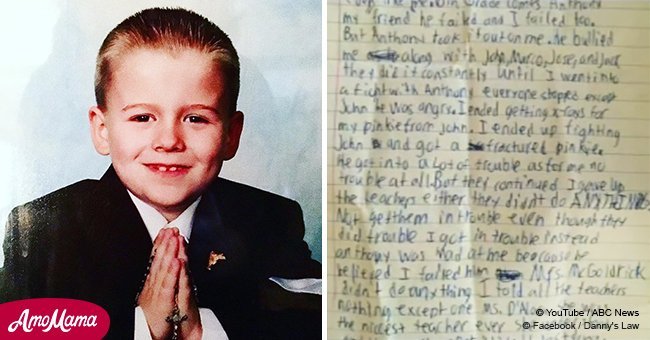 my friend he failed and I failed too.
But Anthony took it out on me. He bullied
me along with John, Marco, Jose, and Jack
they did it constantly until I went into
a fight with Anthony everyone stoped except
John He was angrs. I ended getting x-rays for
my pinkie from John. I ended up fighting
John and got a fractured pinkie.
he got into a lot of trouble as for me no
trouble at all. But they continued I gave up
the teachers either they didn't do ANYTHING
Not get them in trouble even though they
did trouble I got in trouble instead
anthony was mad at me because he
believed I failed him Mrs. McGoldrick
didn't do anything I told all the teachers
nothing except one Ms. D'Alo
the nicest teacher ever
AmoMama
© YouTube / ABC News
© Facebook / Danny's Law